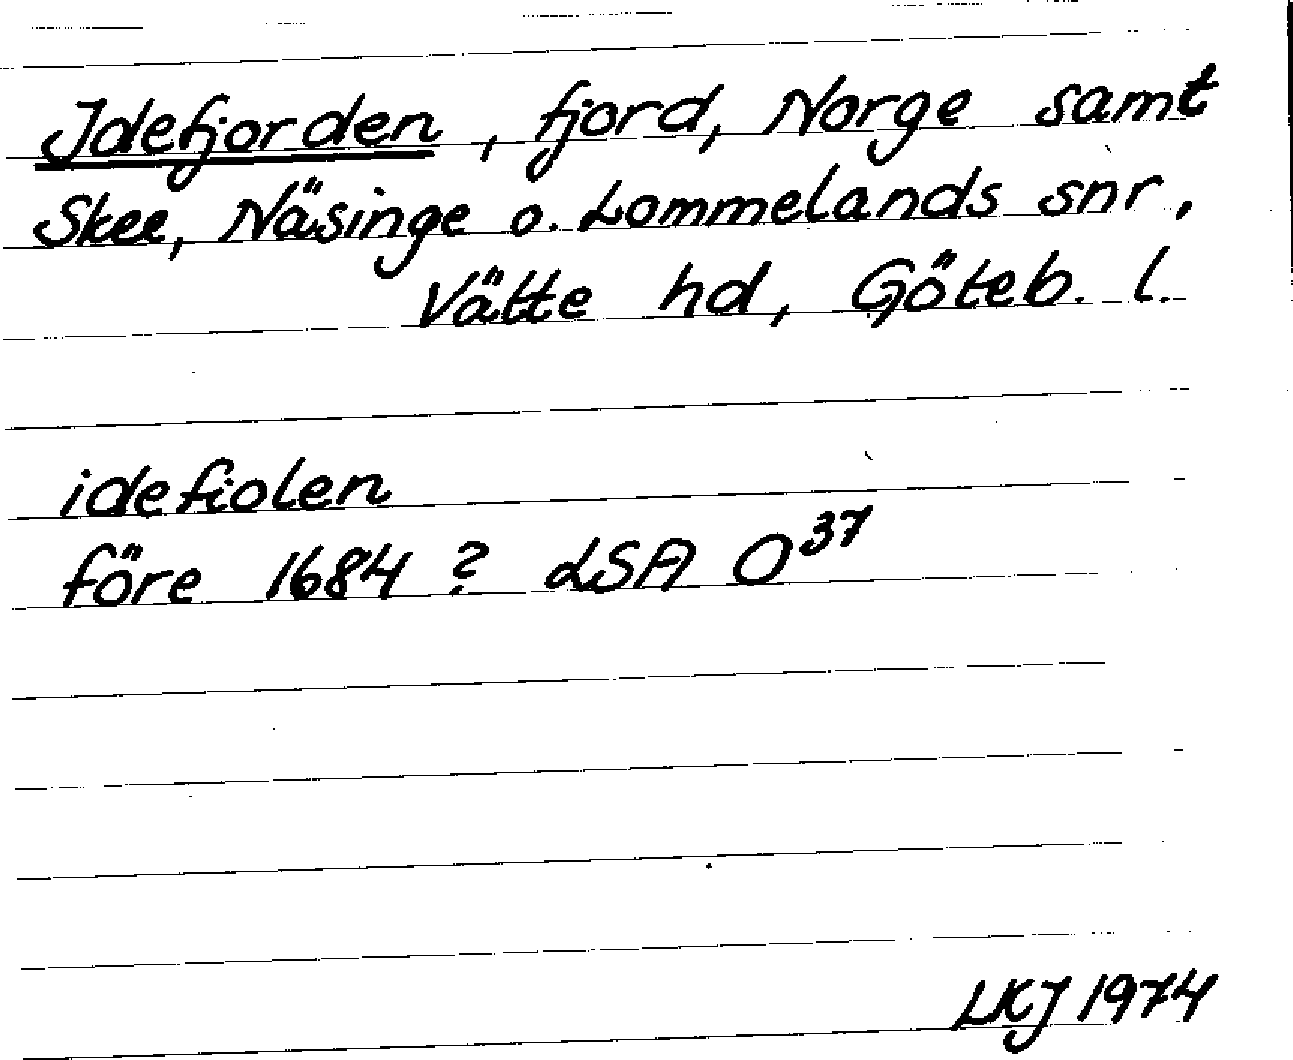 Idefjorden, fjord, Norge samt
Skee, Näsinge o. Lommelands snr,
Vätte hd, Göteb. l.
idefiolen
före 1684 ? LSA O³⁷
LKJ 1974